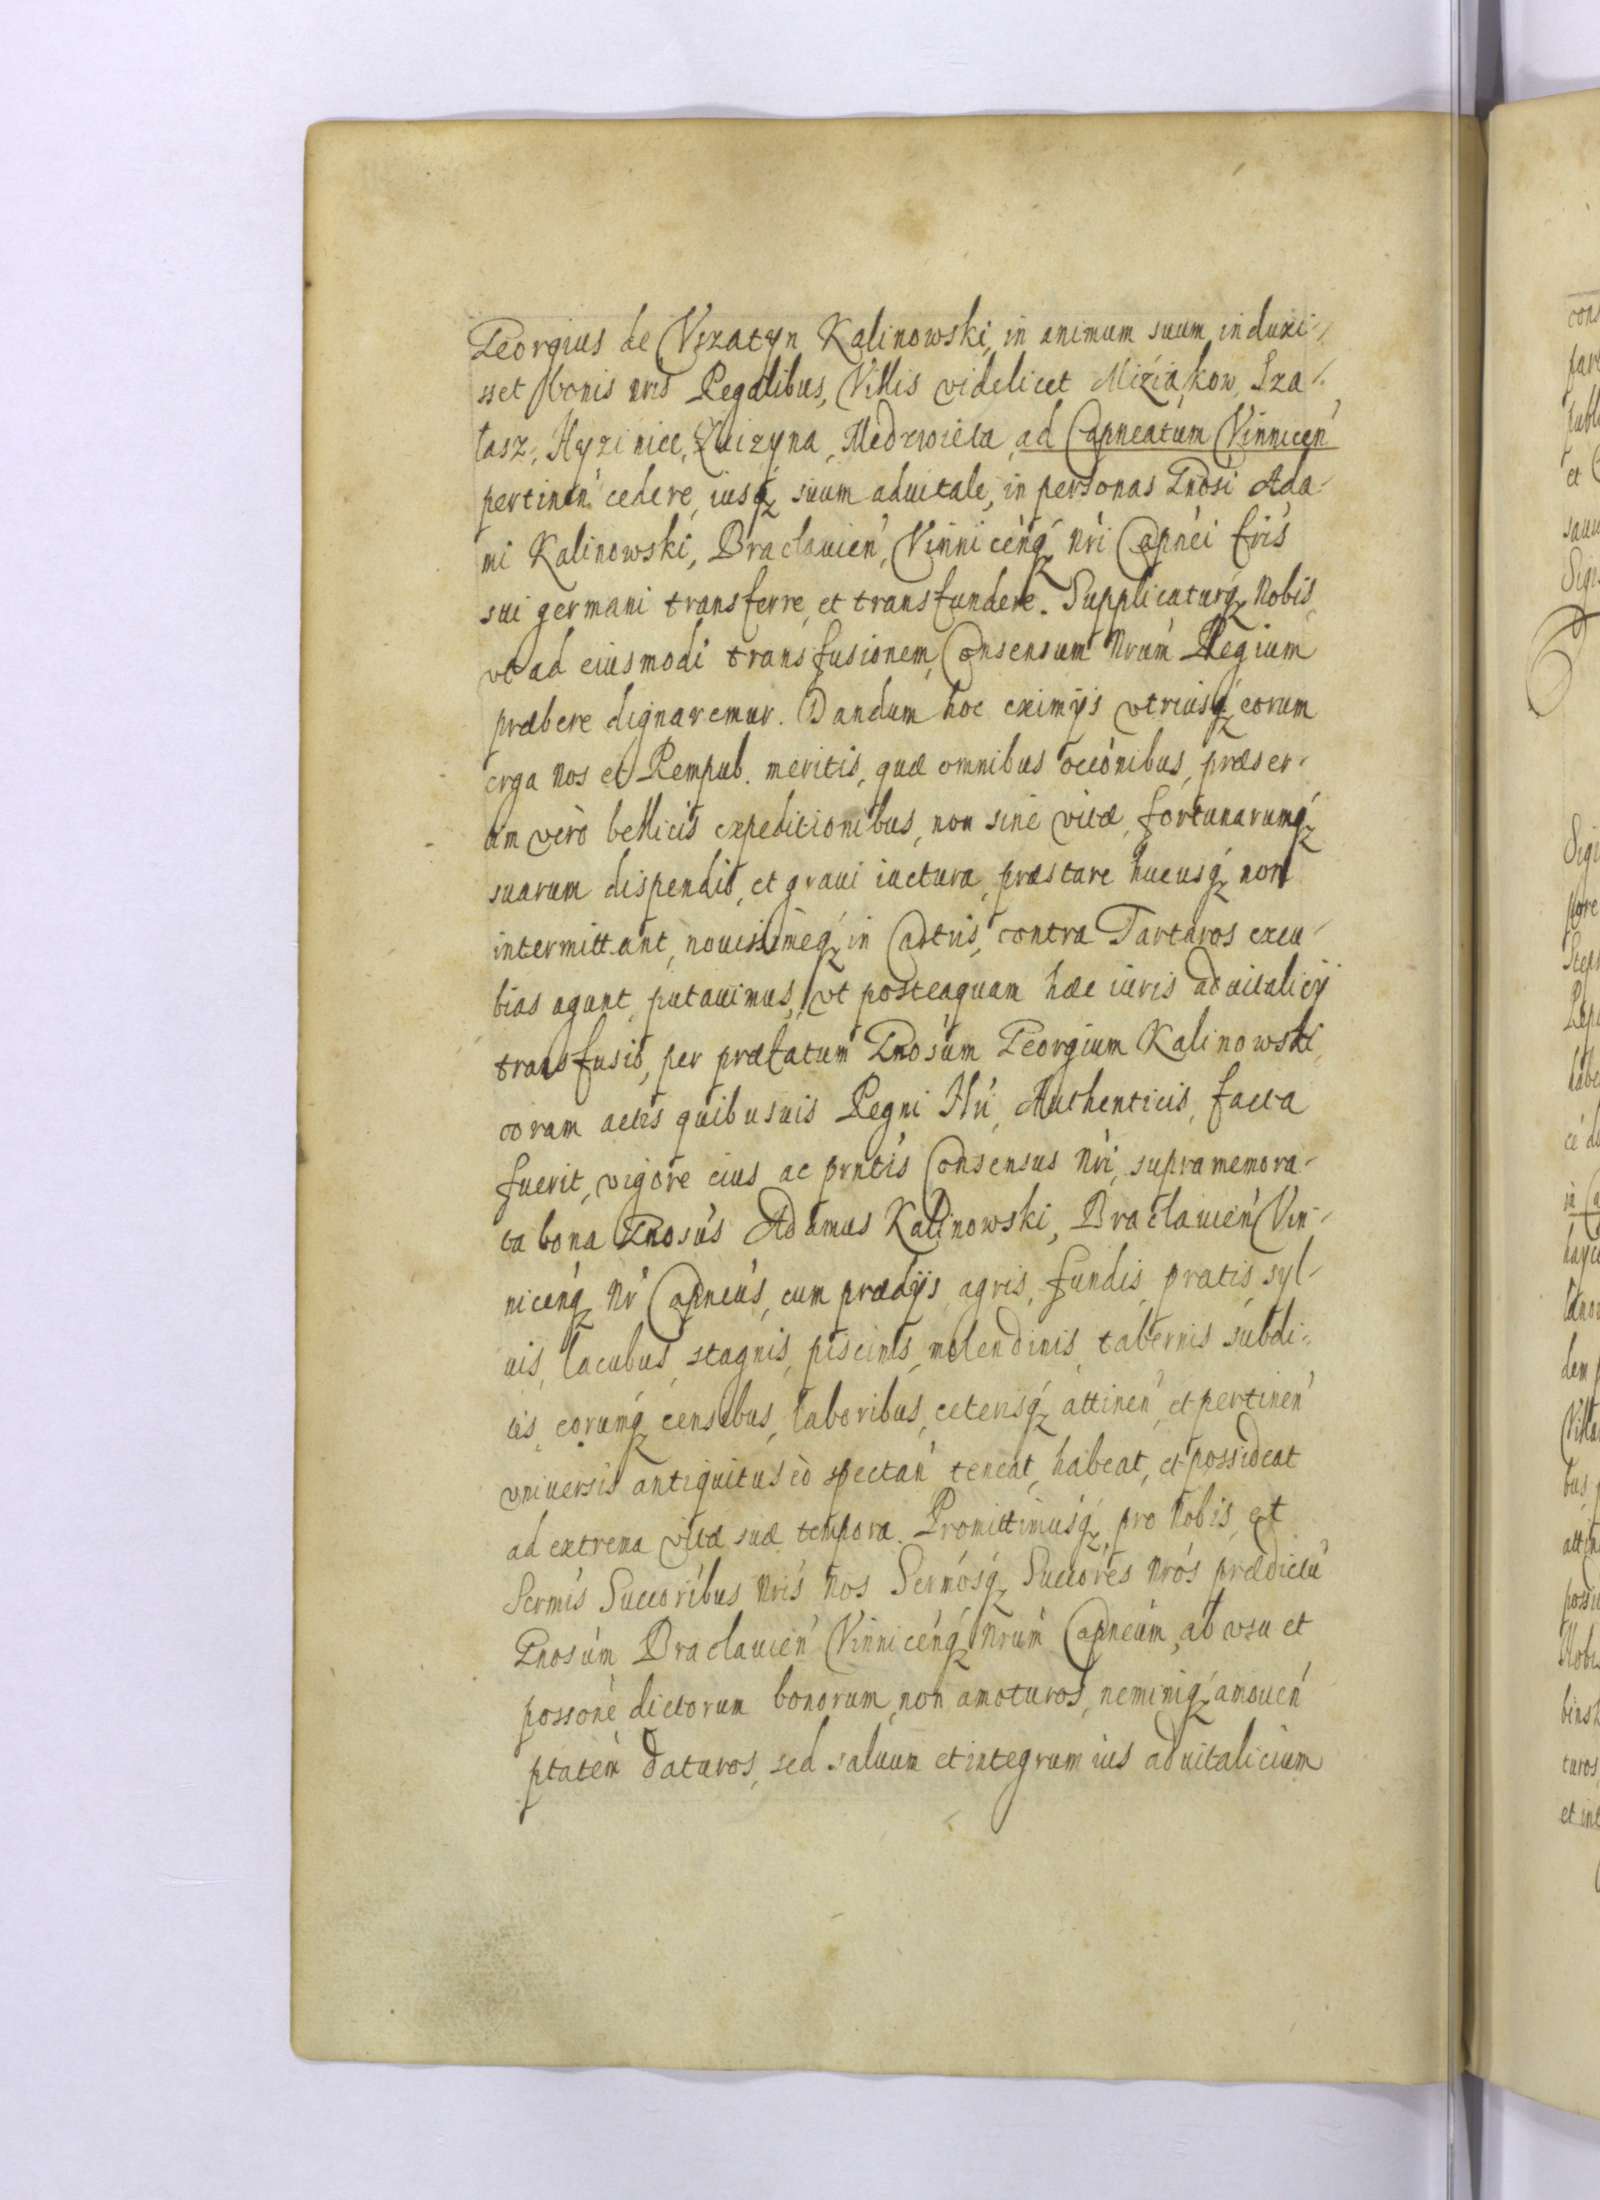 Georgius de Vszatyn Kalinowski, in animum suum induxi-
sset bonis nris Regalibus, Villis videlicet Miziakow, Sza-
łasz, Hyzince, Zwizyna, Medzwieża, ad Capneatum Vinnicen'
pertinen' cedere, iusq́ suum aduitale, in personas Gnosi Ada-
mi Kalinowski, Braclauien', Vinnicenq́ Nri Capnei fris
sui germani transferre, et transfundere. Supplicaturq́ Nobis,
vt ad eiusmodi transfusionem, Consensum Nrum Regium
præbere dignaremur. Dandum hoc eximijs vtriusq́ eorum
erga Nos et Rempub. meritis, quæ omnibus occōnibus, præser-
tim verò bellicis expeditionibus, non sine vitæ, fortunarumq́
suarum dispendio, et graui iactura, præstare hucusq́ non
intermittant, nouissimèq́ in Castris, contra Tartaros excu-
bias agunt, putauimus, vt posteaquam hæc iuris aduitalicij
transfusio, per præfatum Gnosum Georgium Kalinowski,
coram actis quibusuis Regni Nri, Authenticis, facta
fuerit, vigore eius ac prntis Consensus Nri, supramemora-
ta bona Gnosus Adamus Kalinowski, Braclauien' Vin-
nicenq́ Nr Capneus, cum prædijs, agris, fundis, pratis, syl-
uis, lacubus, stagnis, piscinis, molendinis, tabernis, subdi-
tis, eorumq́ censibus, laboribus, ceterisq́ attinen', et pertinen'
vniuersis antiquitus eò spectan' teneat, habeat, et possideat
ad extrema vitæ suæ tempora. Promittimusq́, pro Nobis, et
Sermis Succoribus Nris Nos Sermosq́ Succores Nros prædictu'
Gnosum Braclauien' Vinnicenq́ Nrum Capneum, ab vsu et
possone dictorum bonorum, non amoturos, neminiq́ amouen'
ptatem daturos, sed saluum et integrum ius aduitalicium